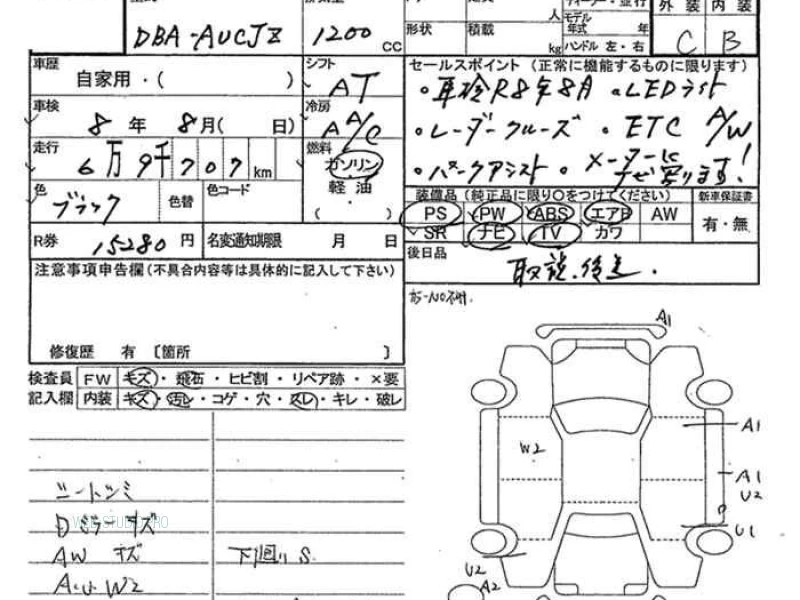 DBA-AUCJZ 1200 CC
外装 内装
C B
形状 積載 人 kg
モデル年式 年
ハンドル 左・右
車歴 自家用・( )
シフト AT
車検 8年 8月( 日)
冷房 A A/C
走行 6万9千707km
燃料 ガソリン 軽油 ( )
色 ブラック 色替 色コード
R券 15280円 名変通知期限 月 日
セールスポイント (正常に機能するものに限ります)
・車検R8年8月 ・LEDライト
・レーダークルーズ ・ETC A/W
・パークアシスト ・メーターに
キズ有ります!
装備品 (純正品に限り○をつけてください) 新車保証書
PS PW ABS エアB AW 有・無
SR ナビ TV カワ
後日品 取説、後送.
注意事項申告欄 (不具合内容等は具体的に記入して下さい)
修復歴 有 〔箇所 〕
検査員 FW キズ・飛石・ヒビ割・リペア跡・×要
記入欄 内装 キズ・汚レ・コゲ・穴・スレ・キレ・破レ
シートシミ
Dミラーキズ
AW キズ 下廻りS
W2
A1
W2
A1
A1
U2
U1
U2
A2